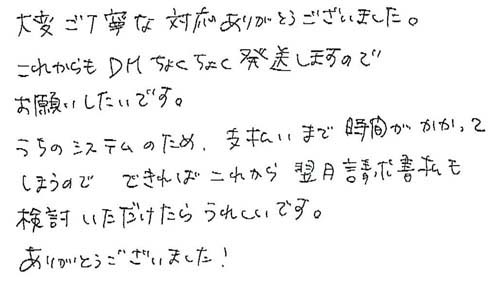 大変ご丁寧な対応ありがとうございました。
これからもDMちょくちょく発送しますので
お願いしたいです。
うちのシステムのため、支払いまで時間がかかって
しまうので できればこれから翌月請求書払も
検討いただけたらうれしいです。
ありがとうございました!